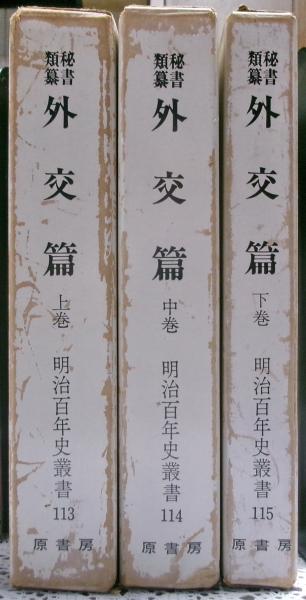 秘書
類纂
外交篇
上巻
明治百年史叢書
113
原書房
秘書
類纂
外交篇
中巻
明治百年史叢書
114
原書房
秘書
類纂
外交篇
下巻
明治百年史叢書
115
原書房